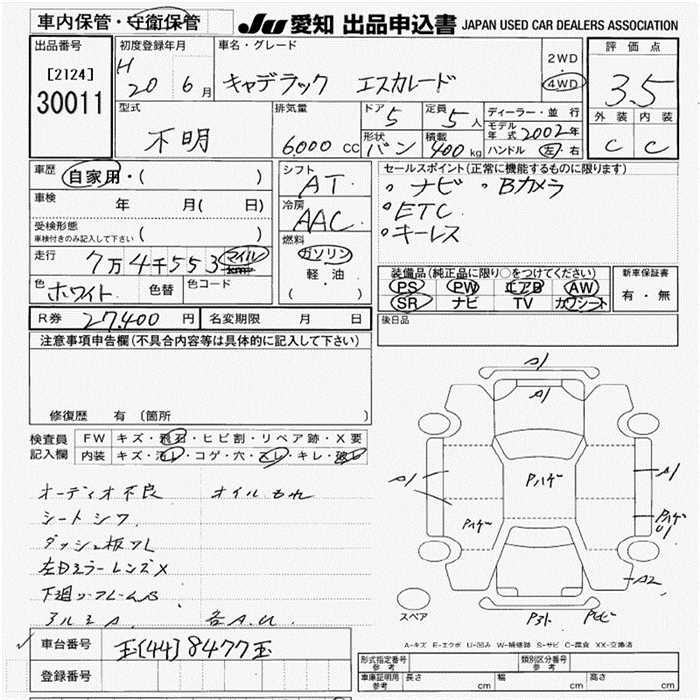 車内保管・守衛保管
JU 愛知 出品申込書 JAPAN USED CAR DEALERS ASSOCIATION
出品番号
[2124]
30011
初度登録年月
H 20 6月
車名・グレード
キャデラック エスカレード
2WD
4WD
評価点
3.5
外装 内装
C C
型式
不明
排気量
6000 CC
ドア 5
定員 5人
形状 バン
積載 400 kg
ディーラー・並行
モデル年式 2002年
ハンドル 左・右
車歴 自家用・( )
車検 年 月( 日)
受検形態
車検付きのみ記入して下さい ( )
走行 7万4千553 マイル km
色 ホワイト 色替 色コード
シフト
AT
冷房
AAC
燃料
ガソリン
軽油
( ・ )
セールスポイント(正常に機能するものに限ります)
。ナビ 。Bカメラ
。ETC
。キーレス
装備品(純正品に限り○をつけてください)
PS PW エアB AW
SR ナビ TV カワシート
新車保証書
有・無
R券 27,400 円 名変期限 月 日
後日品
注意事項申告欄(不具合内容等は具体的に記入して下さい)
修復歴 有 〔箇所
検査員記入欄
FW キズ・飛石・ヒビ割・リペア跡・X要
内装 キズ・汚レ・コゲ・穴・スレ・キレ・破レ
オーディオ不良 オイルもれ
シートシワ
ダッシュ板ワレ
左Dミラーレンズ X
下廻リフレームS
アルミA 各A.U
A1
A1
A1
Pハゲ
A1
Pハゲ
Pハゲ
U1
A2
スペア
A-キズ E-エクボ U-凹み W-補修跡 S-サビ C-腐食 XX-交換済
車台番号 玉[44]8477玉
登録番号
形式指定番号
参考
類別区分番号
参考
車庫証明用
参考
長さ cm 幅 cm 高さ cm